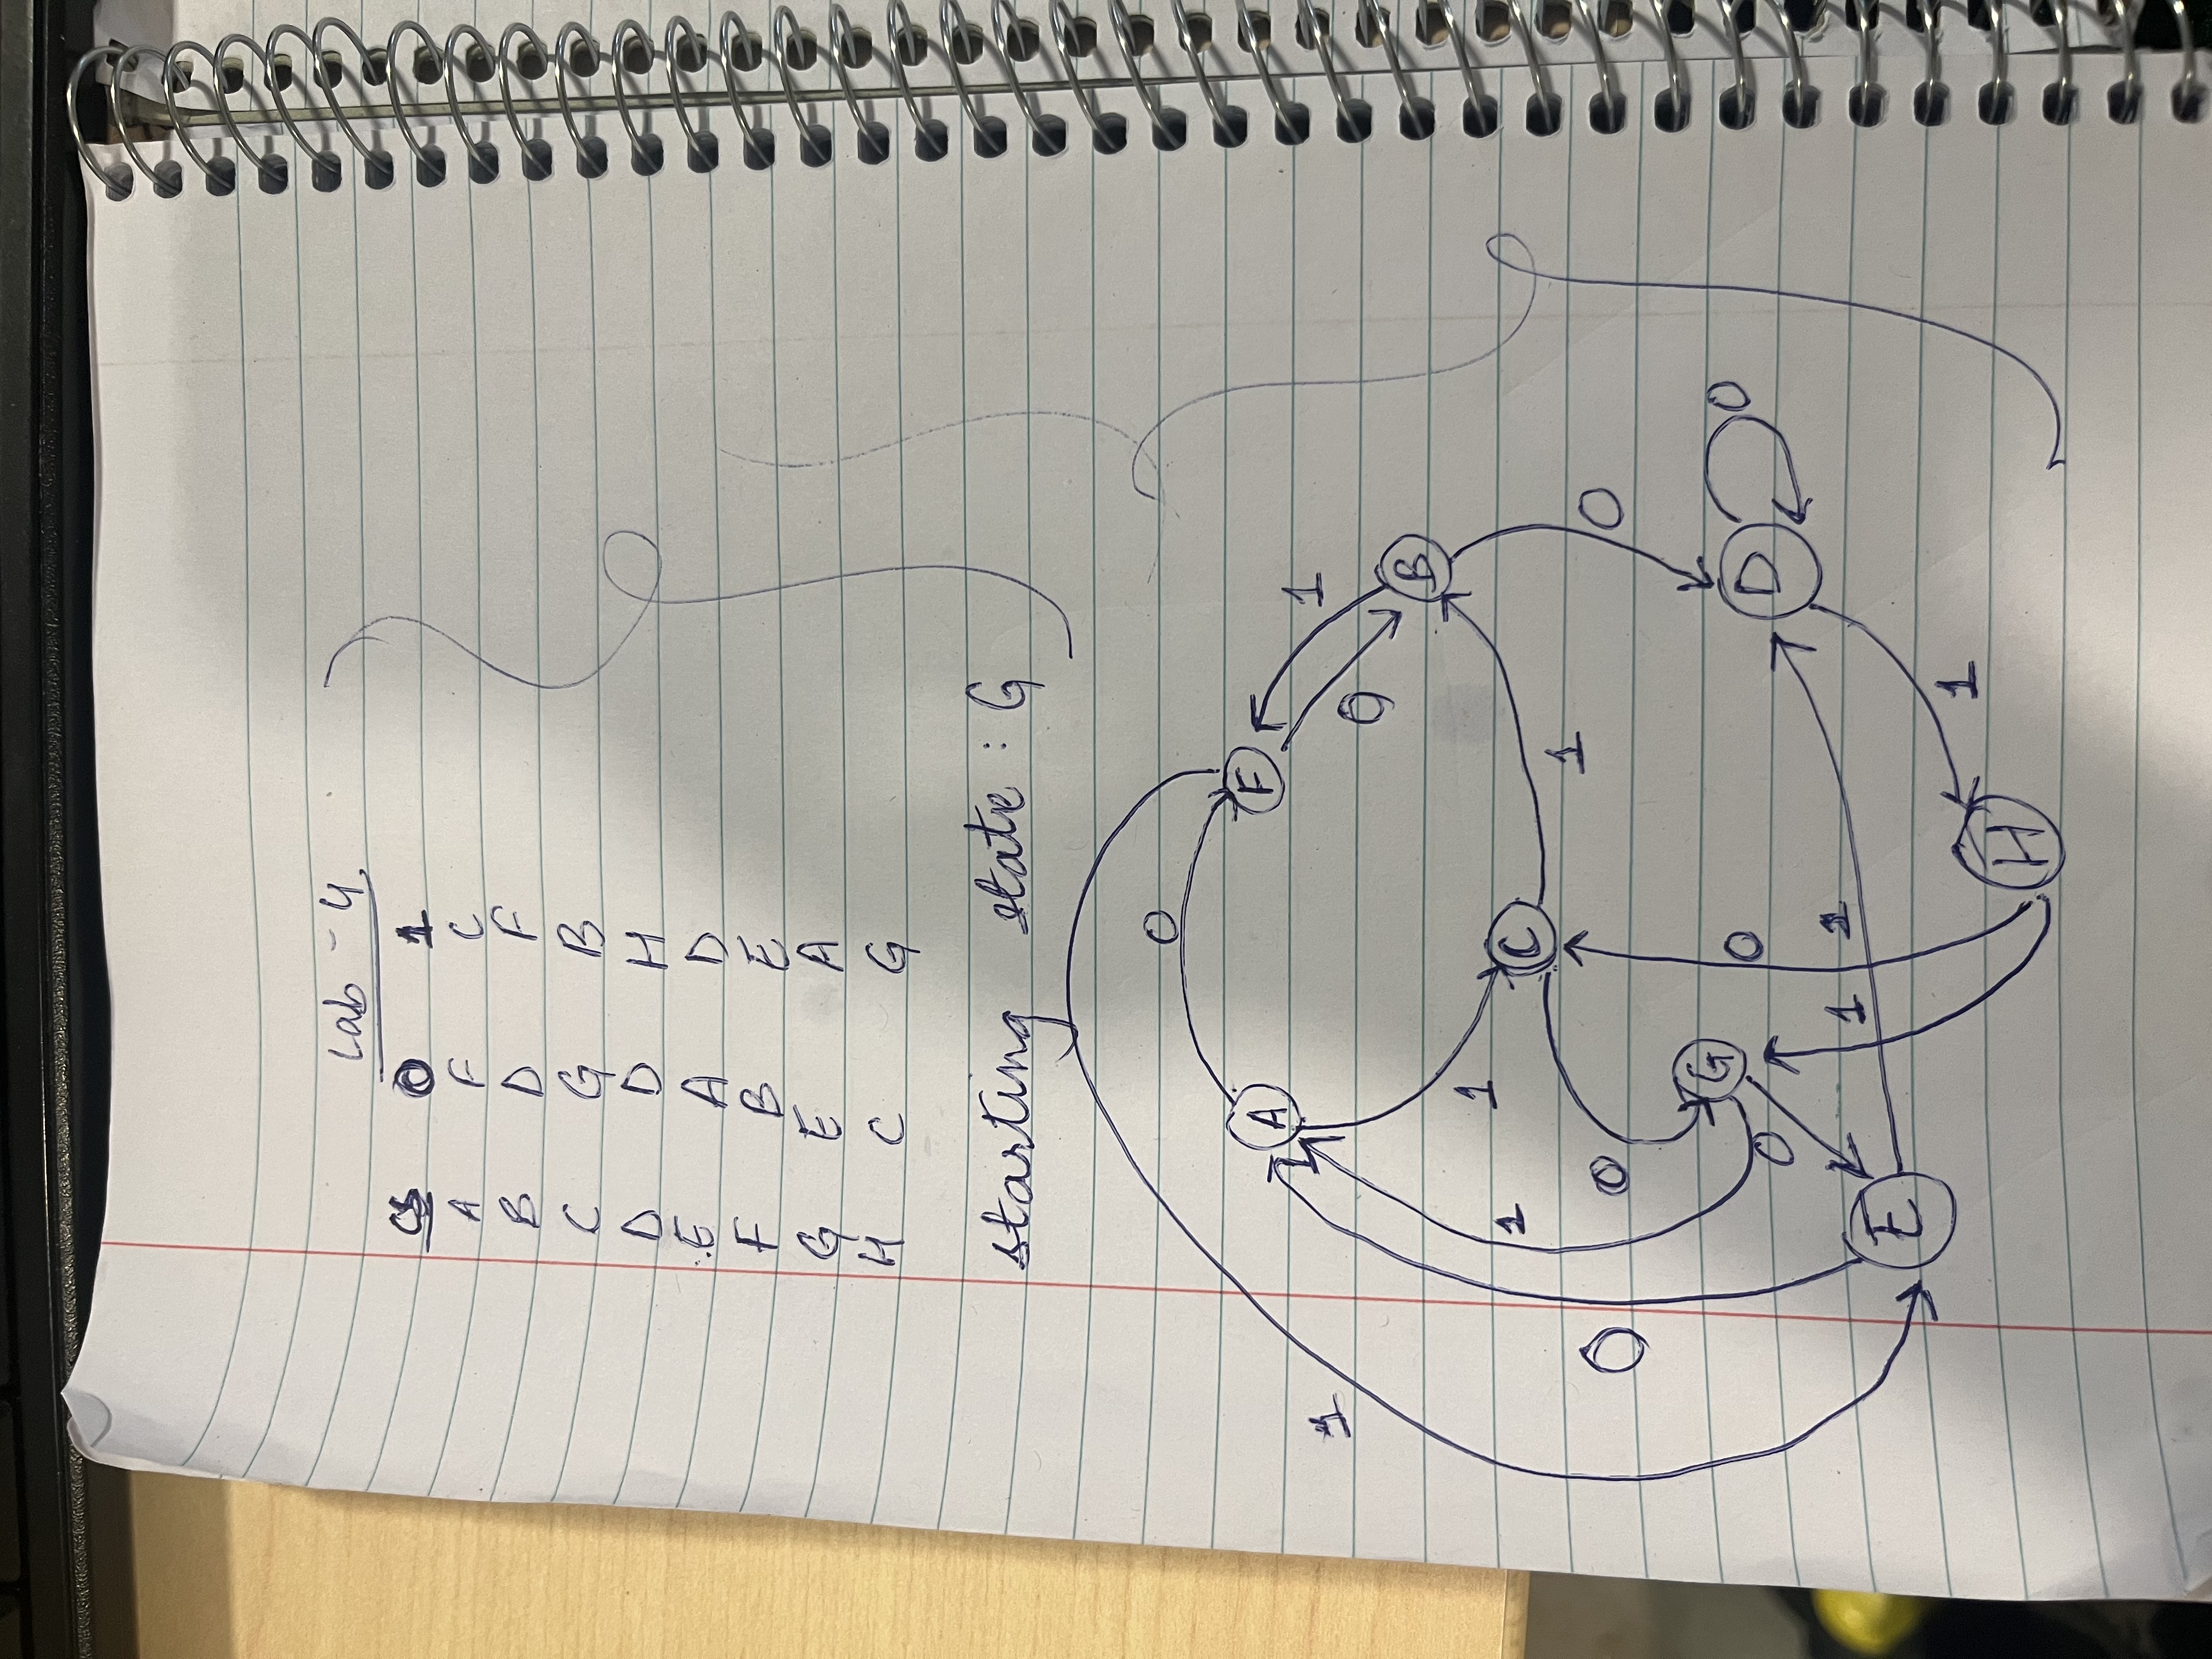 Lab - 4.
CS 0 1
A F C
B D F
C G B
D D H
E A D
F B E
G E A
H C G
starting state : G
0
A F
1 1 1
0
B
1 1
C
1
0 0 0
G
0 0 D 0
1 1
E
1
H